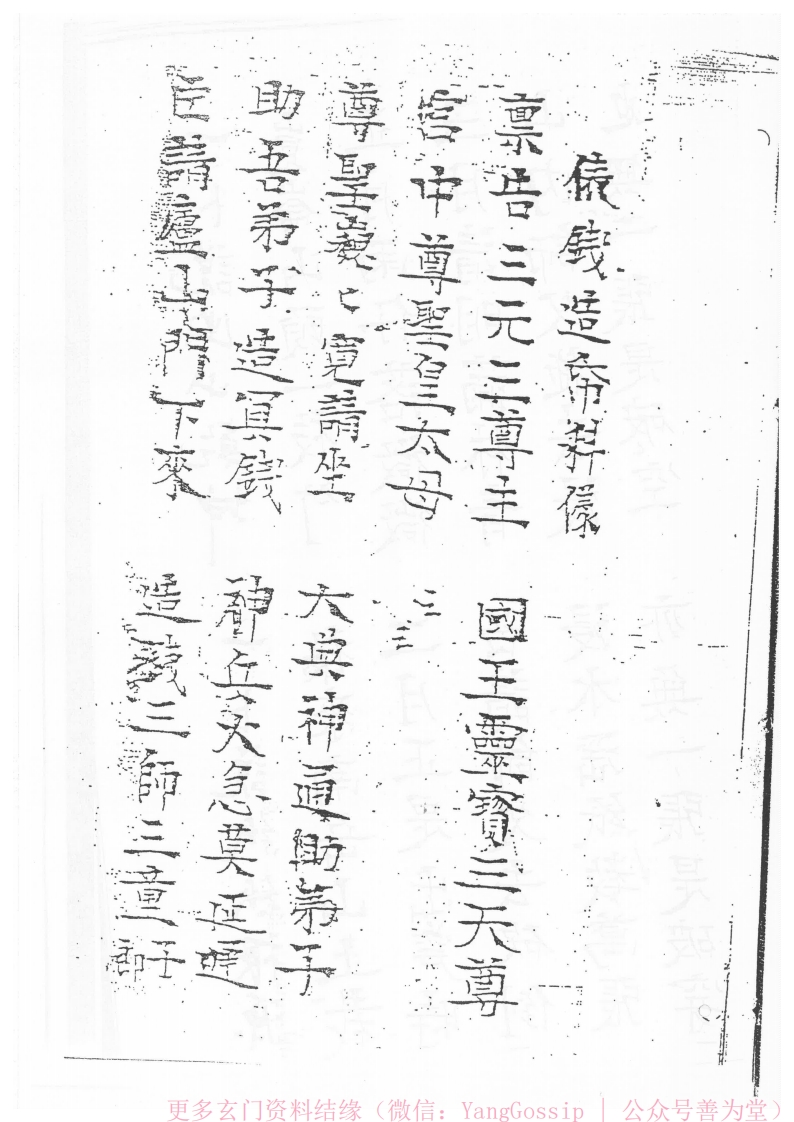 儀錢造帛幷儀
稟告三元三尊主 國王靈寶三天尊
宮中尊聖皇太母 二三
尊聖巍〻寬請坐 大興神通助弟子
助吾弟子造冥錢 神兵火急莫延遲
臣請廬山門下來 造錢三師三童郎
更多玄门资料结缘（微信：YangGossip | 公众号善为堂）